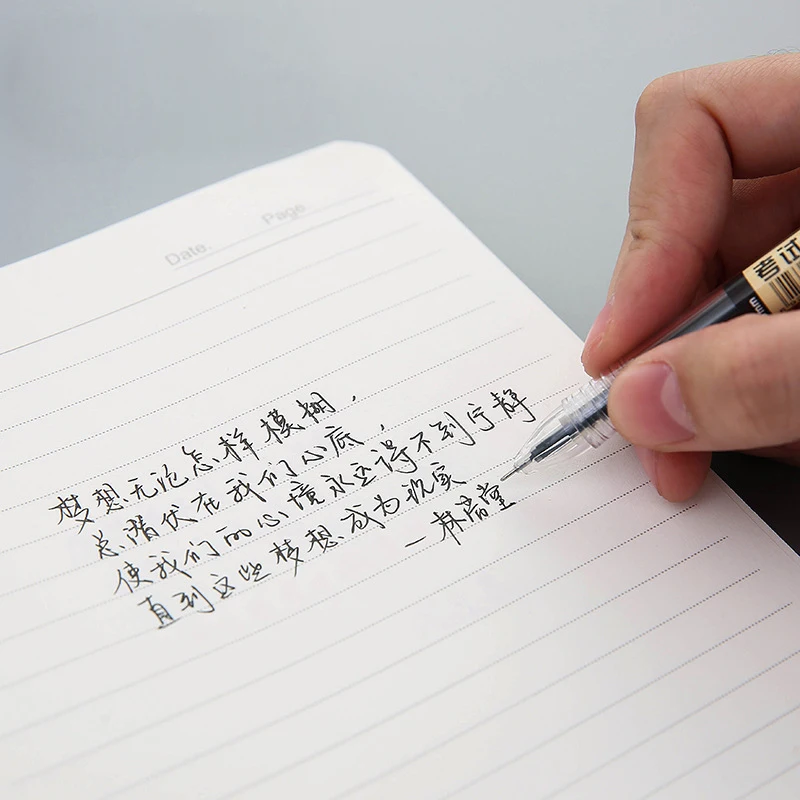 Date. Page
梦想无论怎样模糊，
总潜伏在我们心底，
使我们的心境永远得不到宁静
直到这些梦想成为现实
—林语堂
考试
mm